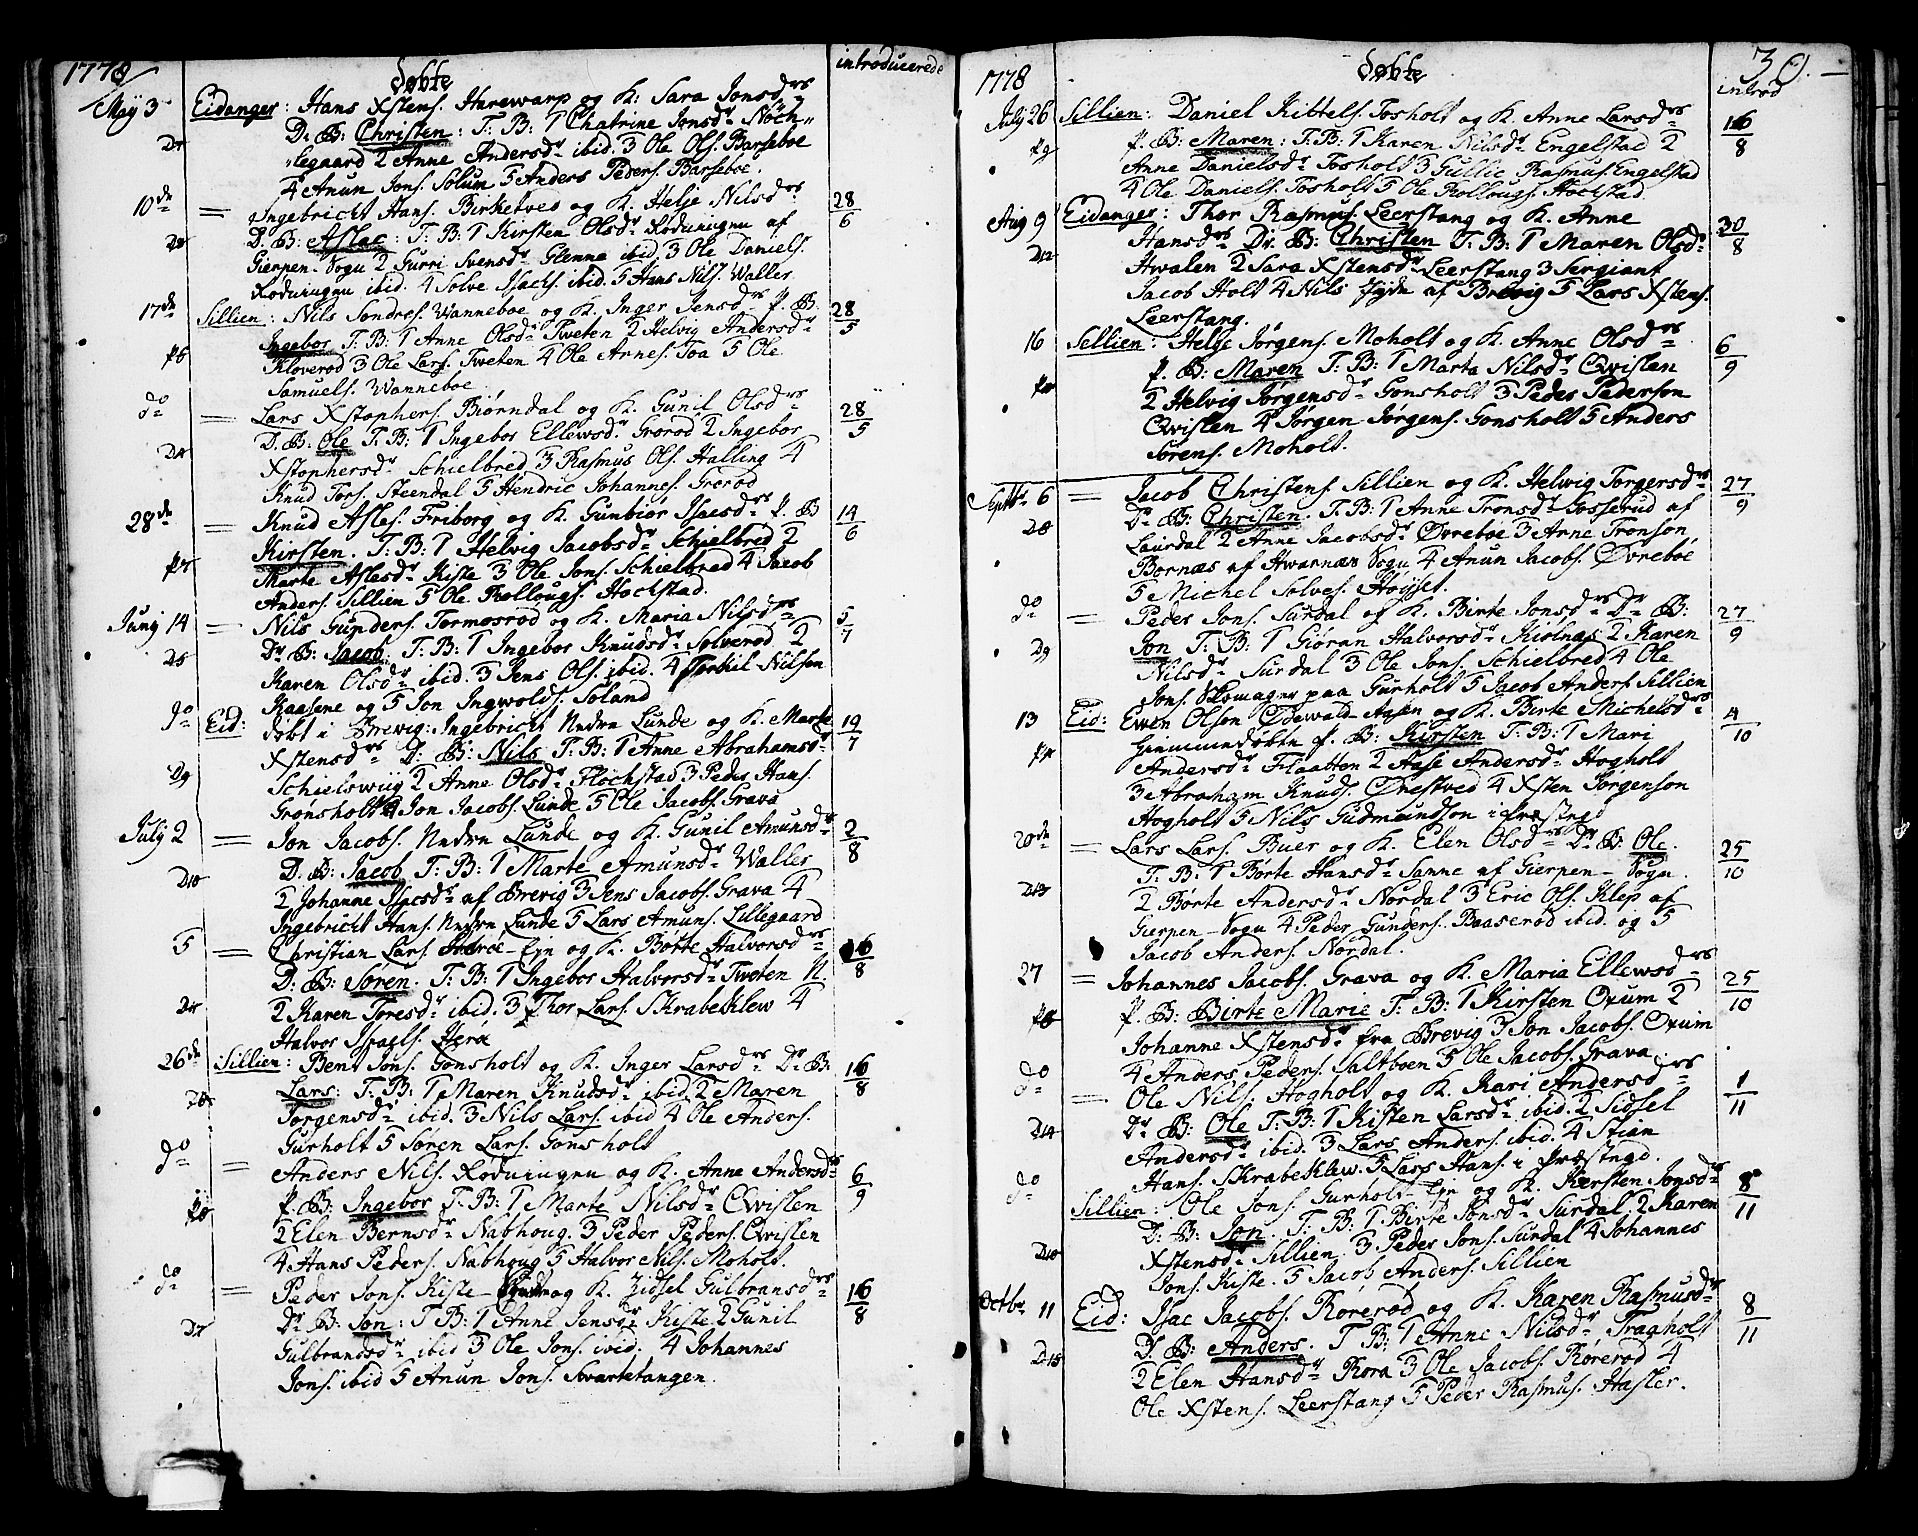 1778
Døbte
introducerede
May 3 Eidanger: Hans Xstens. Harewarp og K: Sara Jonsdrs
D. B: Christen: T: B: 1 Chatrine Jonsdr Noch„
„legaard 2 Anne Andersdr ibid. 3 Ole Ols. Barseboe
4 Anun Jons. Solum 5 Anders Peders. Barseboe.
10de = Ingebricht Hans. Birketved og K. Helje Nilsdrs 28/6
D. B: Aslac: T: B: 1 Kirsten Olsdr Rodningen af
Gierpen-Sogn 2 Gurri Svensdr Glenne ibid. 3 Ole Daniels.
Rodningen ibid. 4 Solve Isachs. ibid. 5 Hans Nils. Waller
17de Sillien: Nils Sondres. Wanneboe og K. Inger Jensdrs P. B. 28/5
P6 Ingebor T. B: 1 Anne Olsdr Tweten 2 Helvig Andersdr
Kloverød 3 Ole Lars. Tweten 4 Ole Arnes. Toa 5 Ole
Samuels. Wanneboe
do = Lars Xstophers. Biørndal og K. Gunil Olsdrs 28/5
D. B: Ole T. B: 1 Ingebor Ellewsdr Grorød 2 Ingebor
Xstophersdr Schielbred 3 Rasmus Ols. Halling 4
Knud Tors. Steendal 5 Hendric Johannes. Grerød
28de = Knud Asles. Friborg og K. Gunbiør Isacsdrs P. B 14/6
P7 Kirsten. T. B: 1 Helvig Jacobsdr Schielbred 2
Marte Aslesdr Kiste 3 Ole Jons. Schielbred 4 Jacob
Anders. Sillien 5 Ole Rollougs. Hochstad.
Junj 14 = Nils Gunders. Tormosrød og K. Maria Nilsdrs 5/7
D5 Dr B: Jacob. T: B: 1 Ingebor Knudsdr Solverød 2
Karen Olsdr ibid. 3 Jens Ols. ibid. 4 Torkil Nilson
Kaasene og 5 Jon Ingwolds. Soland
do Eid: døbt i Brevig: Ingebricht Nedre Lunde og K. Marte 19/7
D9 Xstensdrs D: B: Nils T: B: 1 Anne Abrahamsdr
Schielswiig 2 Anne Olsdr Flochstad 3 Peder Hans.
Grønsholt 4 Jon Jacobs. Lunde 5 Ole Jacobs. Grava
July 2 = Jon Jacobs. Nedre Lunde og K. Gunil Amunsdr 2/8
D10 D. B: Jacob T: B: 1 Marte Amunsdr Waller
2 Johanne Isacsdr af Brevig 3 Jens Jacobs. Grava 4
Ingebricht Hans. Nedre Lunde 5 Lars Amuns. Lillegaard
5 = Christian Lars. Eje og K. Børte Halvorsdrs 16/8
D. B: Søren. T: B: 1 Ingebor Halvorsdr Tweten N.
2 Karen Toresdr ibid. 3 Thor Lars. Skrabeklew 4
Halvor Israels. Herø
26de Sillien: Bent Jons. Gonsholt og K. Inger Larsdrs Dr B: 16/8
Lars: T: B: 1 Maren Knudsdr ibid 2 Maren
Jorgensdr ibid. 3 Nils Lars. ibid 4 Ole Anders.
Gurholt 5 Søren Lars. Gonsholt
do = Anders Nils. Rodningen og K. Anne Andersdrs 6/9
P. B: Ingebor T: B: 1 Marte Nilsdr Qvislen
2 Elen Bernsdr Nabhoug. 3 Peder Peders. Qvislen
4 Hans Peders. Nabhoug 5 Halvor Nils. Moholt.
do = Peder Jons. Kiste- og K. Zidsel Gulbransdrs 16/8
D7 Dr B: Jon: T. B: 1 Anne Jensdr Kiste 2 Gunil
Gulbrandsdr ibid 3 Ole Jons. ibid. 4 Johannes
Jons. ibid 5 Anun Jons. Svartetangen.
1778
Døbte
30.
introd
July 26 Sillien: Daniel Kittels. Tosholt og K. Anne Larsdrs 16/8
P9 P. B: Maren: T: B: 1 Karen Nilsdr Engelstad 2
Anne Danielsdr Tosholt 3 Gullic Rasmus. Engelstad
4 Ole Daniels. Tosholt 5 Ole Rollougs. Hochstad.
Aug 9 Eidanger: Thor Rasmus. Leerstang og K. Anne 30/8
D12 Hansdrs Dr. B: Christen T. B: 1 Maren Olsdr
Hwalen 2 Sara Xstensdr Leerstang 3 Sergiant
Jacob Holt 4 Nils af Brevig 5 Lars Xstens.
Leerstang.
16 Sillien: Helge Jørgens. Moholt og K. Anne Olsdrs 6/9
P. B: Maren T: B: 1 Marta Nilsdr Qvislen
2 Helvig Jørgensdr Gonsholt 3 Peder Pederson
Qvislen 4 Jørgen Jørgens. Gonsholt 5 Anders
Sørens. Moholt.
Septbr 6 = Jacob Christens. Sillien og K. Helvig Torgersdrs 27/9
D8 Dr B: Christen. T: B: 1 Anne Tronsdr Fosserud af
Laurdal 2 Anne Jacobsdr Øvreboe 3 Arne Tronson
Bornæs af Hwarnæs Sogn 4 Anun Jacobs. Øvreboe
5 Michel Solves. Høyset.
do = Peder Jons. Surdal og K. Birte Jonsdrs Dr B: 27/9
D9 Jon T. B: 1 Giøran Halvorsdr Kiolnæs 2 Karen
Nilsdr Surdal 3 Ole Jons. Schielbred 4 Ole
Jons. Skomager paa Gurholt 5 Jacob Anders. Sillien
13 Eid: Ewen Olson Ødewald Aasen og K. Birte Michelsdrs 4/10
Hiemmedøbte P. B: Kirsten T: B: 1 Mari
Andersdr Flaatten 2 Aase Andersdr Hogholt
3 Abraham Knuds. Ørestved 4 Xsten Jørgenson
Hogholt 5 Nils Gudmundson i Præstegd
20de = Lars Lars. Buer og K. Elen Olsdrs Dr B: Ole. 25/10
D13 T. B: 1 Børte Hansdr Sanne af Gierpen-Sogn.
2 Børte Andersdr Nordal 3 Eric Ols. Klep af
Gierpen-Sogn 4 Peder Gunders. Baaserød ibid. og 5
Jacob Anders. Nordal.
27 = Johannes Jacobs. Grava og K. Maria Ellewsdrs 25/10
P. B: Birte Marie T: B: 1 Kirsten Orum 2
Johanne Xstensdr fra Brevig 3 Jon Jacobs. Orum
4 Anders Peders. Saltboen 5 Ole Jacobs. Grava
do = Ole Nils. Hogholt og K. Kari Andersdrs 1/11
D14 Dr B: Ole T: B: 1 Kisten Larsdr ibid. 2 Sidsel
Andersdr ibid. 3 Lars Anders. ibid. 4 Stian
Hans. Skrabeklew. 5 Lars Hans. i Præstegd.
do Sillien: Ole Jons. Gurholt-Eje og K. Kersten Jonsdrs 8/11
D10 D: B: Jon T: B: 1 Birte Jonsdr Surdal, 2 Karen
Xstensdr Sillien 3 Peder Jons. Surdal 4 Johannes
Jons. Kiste. 5 Jacob Anders. Sillien
Octbr 11 Eid: Isac Jacobs. Rorerød og K. Karen Rasmusdrs 8/11
D15 D. B: Anders. T B: 1 Anne Nilsdr Tragholt
2 Elen Hansdr Rora 3 Ole Jacobs. Rorerød 4
Ole Xstens. Leerstang 5 Peder Rasmus. Hasler.